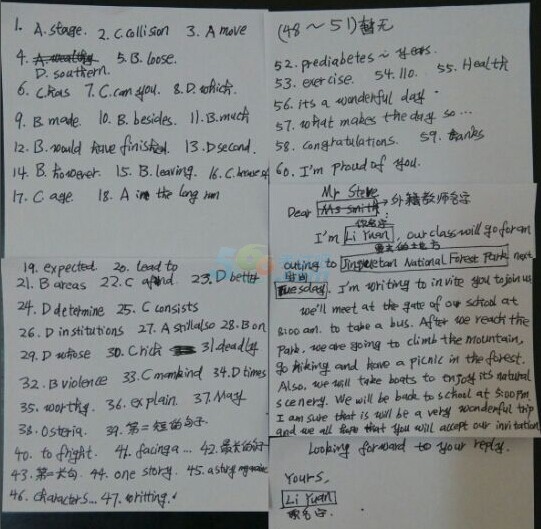 1. A. stage. 2. C. collision 3. A move
4. A. wealthy 5. B. loose.
D. southern.
6. C. has 7. C. can you. 8. D. which.
9. B. made. 10. B. besides. 11. B. much
12. B. would have finished. 13. D second.
14. B. however. 15. B. leaving. 16. C. because of
17. C age. 18. A in the long run
19. expected. 20. lead to
21. B areas 22. C 23. D better
24. D determine 25. C consists
26. D institutions 27. A 28. B on
29. D whose 30. C rich 31. deadly
32. B violence 33. C mankind 34. D times
35. worthy. 36. explain. 37. May
38. Osteria. 39. 第二短的句子
40. to fright. 41. facing a... 42. 最长的句子
43. 第一大句. 44. one story. 45.
46. characters... 47. writting.
(48～51)暂无
52. prediabetes years.
53. exercise. 54. 110. 55. Health
56. its a wonderful day.
57. what makes the day so...
58. congratulations. 59. thanks
60. I'm proud of you.
Mr Steve
Dear Ms Smith → 外籍教师名字
你名字
I'm Li Yuan, our class will go for an
要去的地方
outing to National Forest Park next
时间
Tuesday. I'm writing to invite you to join us
we'll meet at the gate of our school at
8:00 am. to take a bus. After we reach the
Park, we are going to climb the mountain,
go hiking and have a picnic in the forest.
Also, we will take boats to enjoy its natural
scenery. We will be back to school at 5:00 PM.
I am sure that is will be a very wonderful trip
and we all hope that you will accept our invitation
Looking forward to your reply.
Yours,
Li Yuan